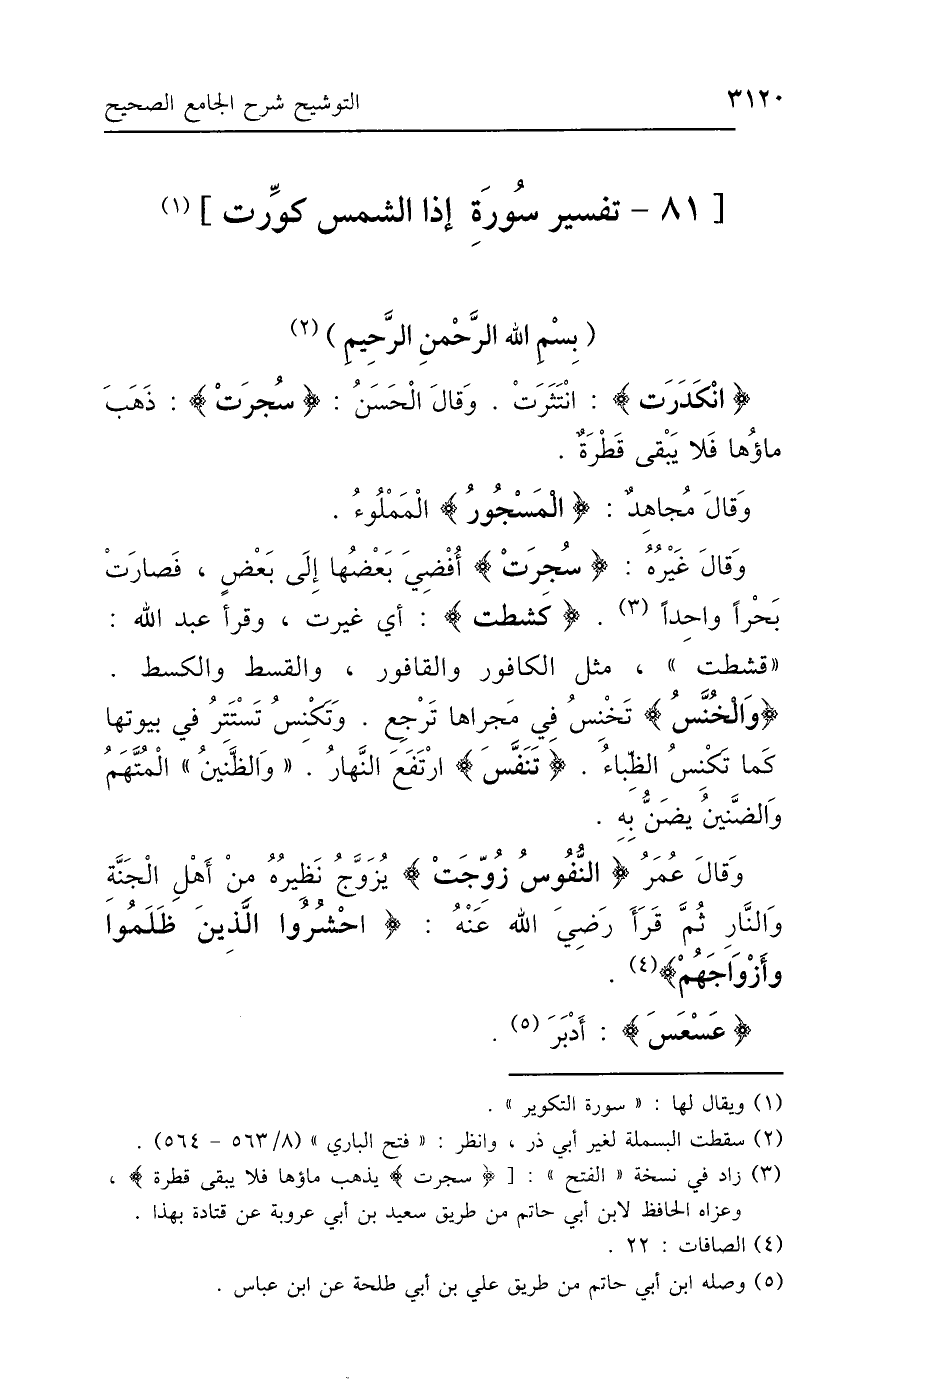 ٣١٢٠
التوشيح شرح الجامع الصحيح
[ ٨١ - تفسير سُورَةِ إذا الشمس كوِّرت ] (١)
( بِسْمِ الله الرَّحْمنِ الرَّحِيمِ ) (٢)
﴿ انْكَدَرَت ﴾ : انْتَثَرَتْ . وَقالَ الْحَسَنُ : ﴿ سُجرَتْ ﴾ : ذَهَبَ
ماؤُها فَلا يَبْقى قَطْرَةٌ .
وَقالَ مُجاهِدٌ : ﴿ الْمَسْجُورُ ﴾ الْمَمْلُوءُ .
وَقالَ غَيْرُهُ : ﴿ سُجِرَتْ ﴾ أُفْضِيَ بَعْضُها إِلَى بَعْضٍ ، فَصارَتْ
بَحْراً واحِداً (٣) . ﴿ كشطت ﴾ : أي غيرت ، وقرأ عبد الله :
«قشطت » ، مثل الكافور والقافور ، والقسط والكسط .
﴿وَالْخُنَّسُ ﴾ تَخْنِسُ فِي مَجراها تَرْجِع . وَتَكْنِسُ تَسْتَتِرُ في بيوتها
كَما تَكْنِسُ الظِّباءُ . ﴿ تَنَفَّسَ ﴾ ارْتَفَعَ النَّهارُ . « وَالظَّنينُ » الْمُتَّهَمُ
وَالضَّنَينُ يضَنُّ بِهِ .
وَقالَ عُمَرُ ﴿ النُّفُوسُ زُوِّجَتْ ﴾ يُزَوَّجُ نَظِيرُهُ مِنْ أَهْلِ الْجَنَّةِ
وَالنَّارِ ثُمَّ قَرَأَ رَضِيَ الله عَنْهُ : ﴿ احْشُرُوا الَّذِينَ ظَلَمُوا
وأَزْوَاجَهُمْ﴾(٤) .
﴿ عَسْعَسَ ﴾ : أَدْبَرَ (٥) .
(١) ويقال لها : « سورة التكوير » .
(٢) سقطت البسملة لغير أبي ذر ، وانظر : « فتح الباري » (٨/ ٥٦٣ - ٥٦٤) .
(٣) زاد في نسخة « الفتح » : [ ﴿ سجرت ﴾ يذهب ماؤها فلا يبقى قطرة ﴾ ،
وعزاه الحافظ لابن أبي حاتم من طريق سعيد بن أبي عروبة عن قتادة بهذا .
(٤) الصافات : ٢٢ .
(٥) وصله ابن أبي حاتم من طريق علي بن أبي طلحة عن ابن عباس .